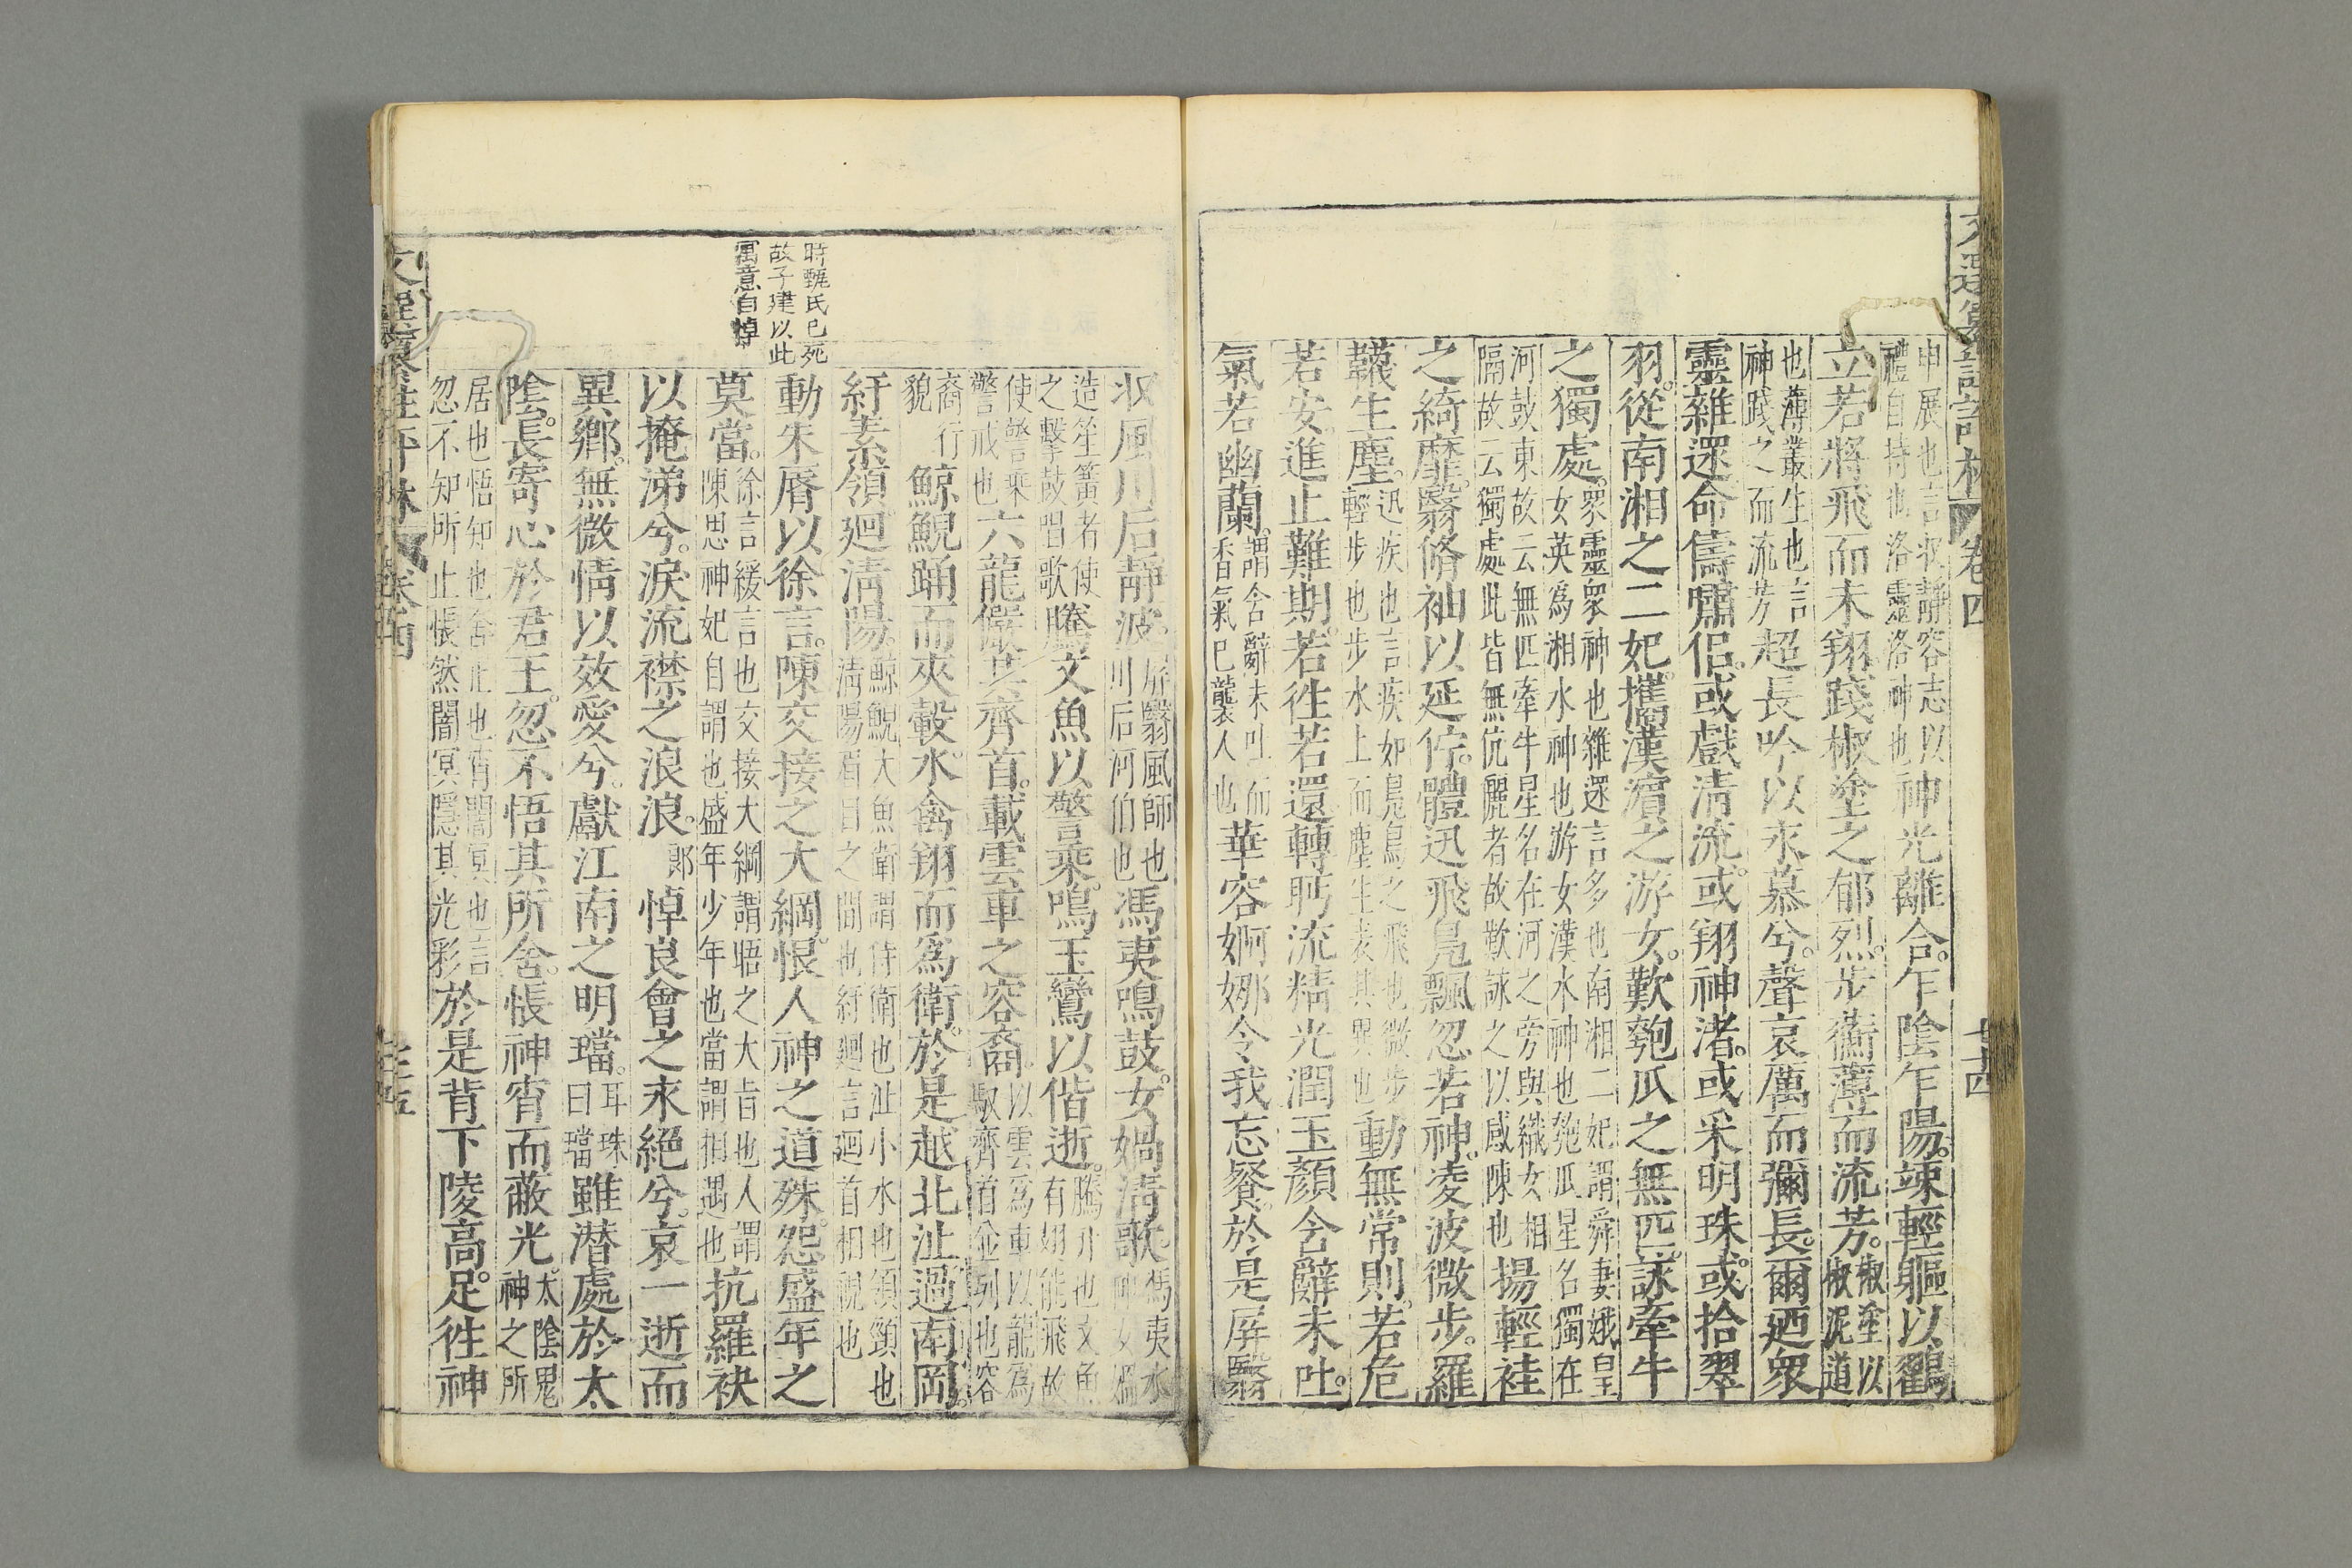 卷四
申展也言収靜容志以
禮自持也洛靈洛神也
神光離合乍陰乍陽竦輕軀以鶴
立若將飛而未翔踐椒塗之郁烈步蘅薄而流芳
椒塗以椒泥道
也薄叢生也言
神踐之而流芳
超長吟以永慕兮聲哀厲而彌長爾廼衆
靈雜遝命儔嘯侶或戲清流或翔神渚或采明珠或拾翠
羽從南湘之二妃攜漢濵之游女歎匏瓜之無匹詠牽牛
之獨處
衆靈衆神也雜遝言多也南湘二妃謂舜妻娥皇
女英為湘水神也游女漢水神也匏瓜星名獨在
河鼓東故云無匹牽牛星名在河之旁與織女相
隔故云獨處此皆無伉儷者故歎詠之以感陳也
揚輕袿
之綺靡翳脩袖以延佇體迅飛鳧飄忽若神凌波微步羅
韈生塵
迅疾也言疾如鳧鳥之飛也微步
輕步也步水上而塵生表其異也
動無常則若危
若安進止難期若徃若還轉眄流精光潤玉顏含辭未吐
氣若幽蘭
謂含辭未吐而
香氣已襲人也
華容婀娜令我忘餐於是屏翳
収風川后靜波
屏翳風師也
川后河伯也
馮夷鳴鼓女媧清歌
馮夷水
神女媧
造笙簧者使
之擊鼓唱歌
騰文魚以警乘鳴玉鸞以偕逝
騰升也文魚
有翅能飛故
使警乘
警戒也
六龍儼其齊首載雲車之容裔
以雲為車以龍為
馭齊首並列也容
裔行
貌
鯨鯢踊而夾轂水禽翔而為衛於是越北沚過南岡
紆素領廻清陽
鯨鯢大魚衛謂侍衛也沚小水也領頸也
清陽眉目之間也紆廻言廻首相視也
動朱脣以徐言陳交接之大綱恨人神之道殊怨盛年之
莫當
徐言緩言也交接大綱謂晤之大旨也人謂
陳思神妃自謂也盛年少年也當謂相遇也
抗羅袂
以掩涕兮淚流襟之浪浪
郎
悼良會之永絕兮哀一逝而
異鄉無微情以效愛兮獻江南之明璫
耳珠
曰璫
雖潜處於太
陰長寄心於君王忽不悟其所舍悵神宵而蔽光
太陰鬼
神之所
居也悟知也舍止也宵闇冥也言
忽不知所止悵然闇冥隱其光彩
於是背下陵高足徃神
時甄氏已死
故子建以此
寓意自悼